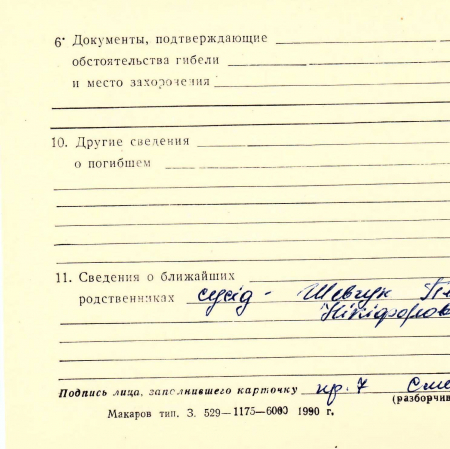 6· Документы, подтверждающие
обстоятельства гибели
и место захоронения
10. Другие сведения
о погибшем
11. Сведения о ближайших
родственниках сусід - Шевчук
Нікіфоров
Подпись лица, заполнившего карточку пр. 7 Сме
(разборчив
Макаров тип. З. 529—1175—6000 1990 г.